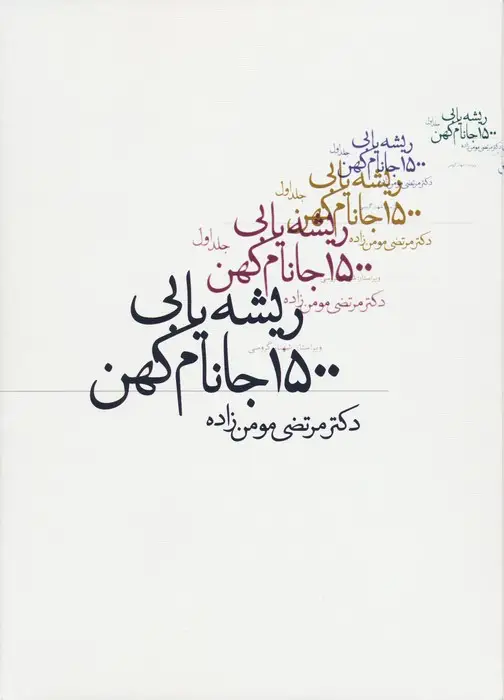 ریشه‌یابی
۱۵۰۰ جانام کهن
جلد اول
ریشه‌یابی
۱۵۰۰ جانام کهن
جلد اول
دکتر مرتضی مومن‌زاده
ریشه‌یابی
۱۵۰۰ جانام کهن
جلد اول
دکتر مرتضی مومن‌زاده
ریشه‌یابی
۱۵۰۰ جانام کهن
جلد اول
دکتر مرتضی مومن‌زاده
ریشه‌یابی
۱۵۰۰ جانام کهن
دکتر مرتضی مومن‌زاده